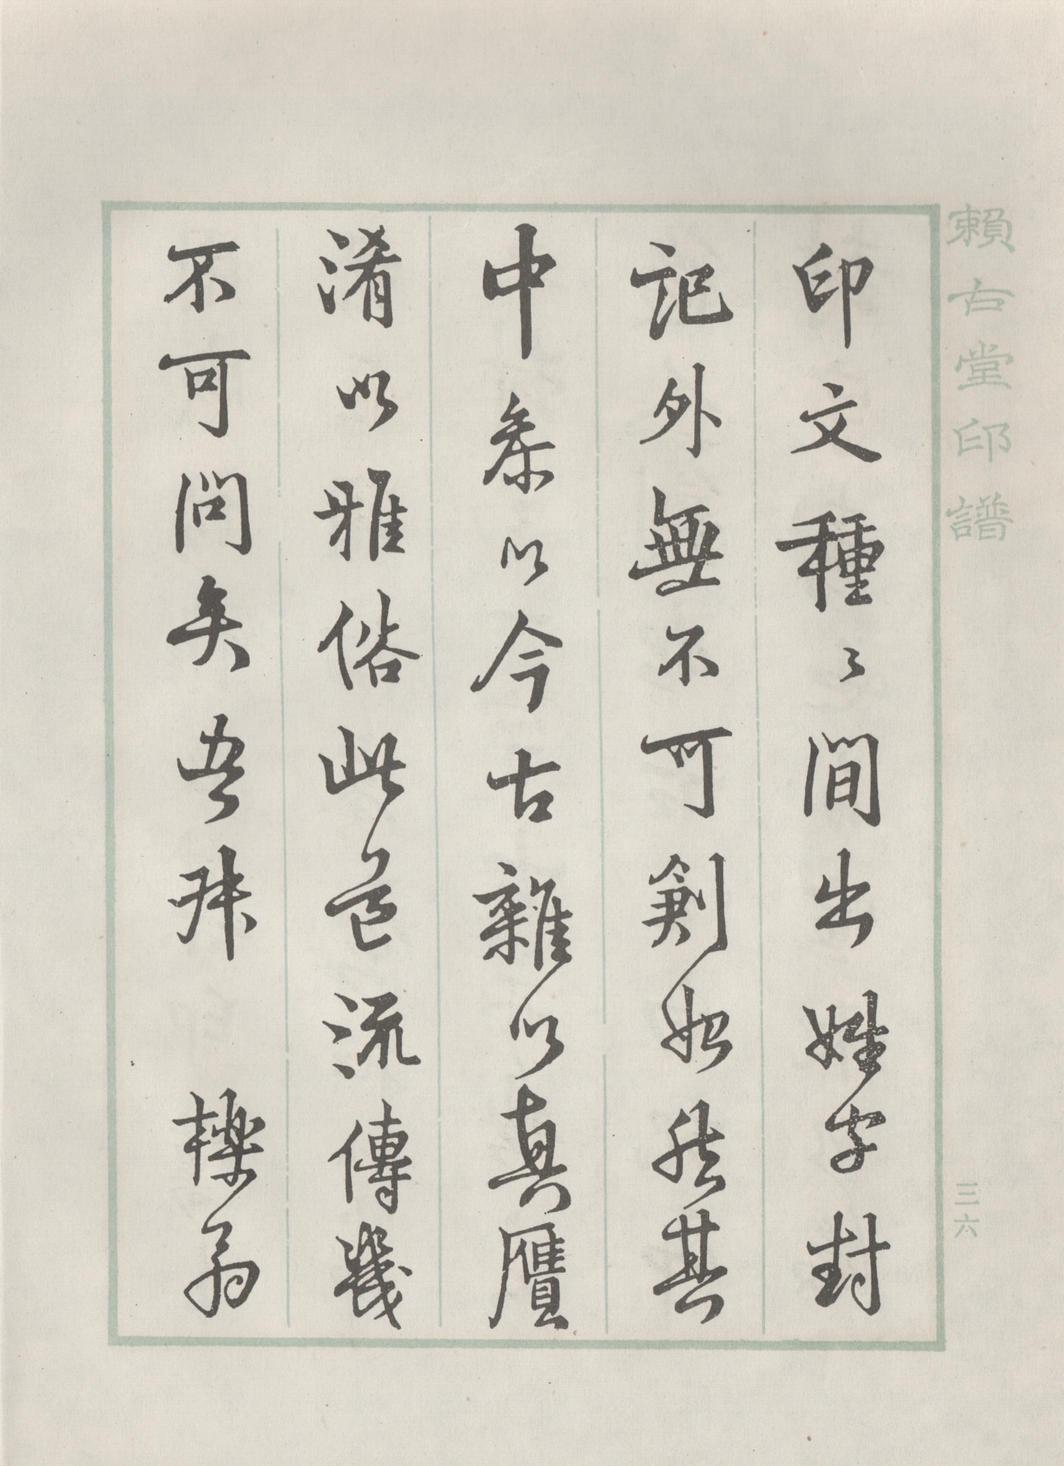 賴古堂印譜
三六
印文種〻間出姓字封
記外無不可創始然其
中叅以今古雜以真贋
淆以雅俗此道流傳幾
不可問矣吾
櫟翁